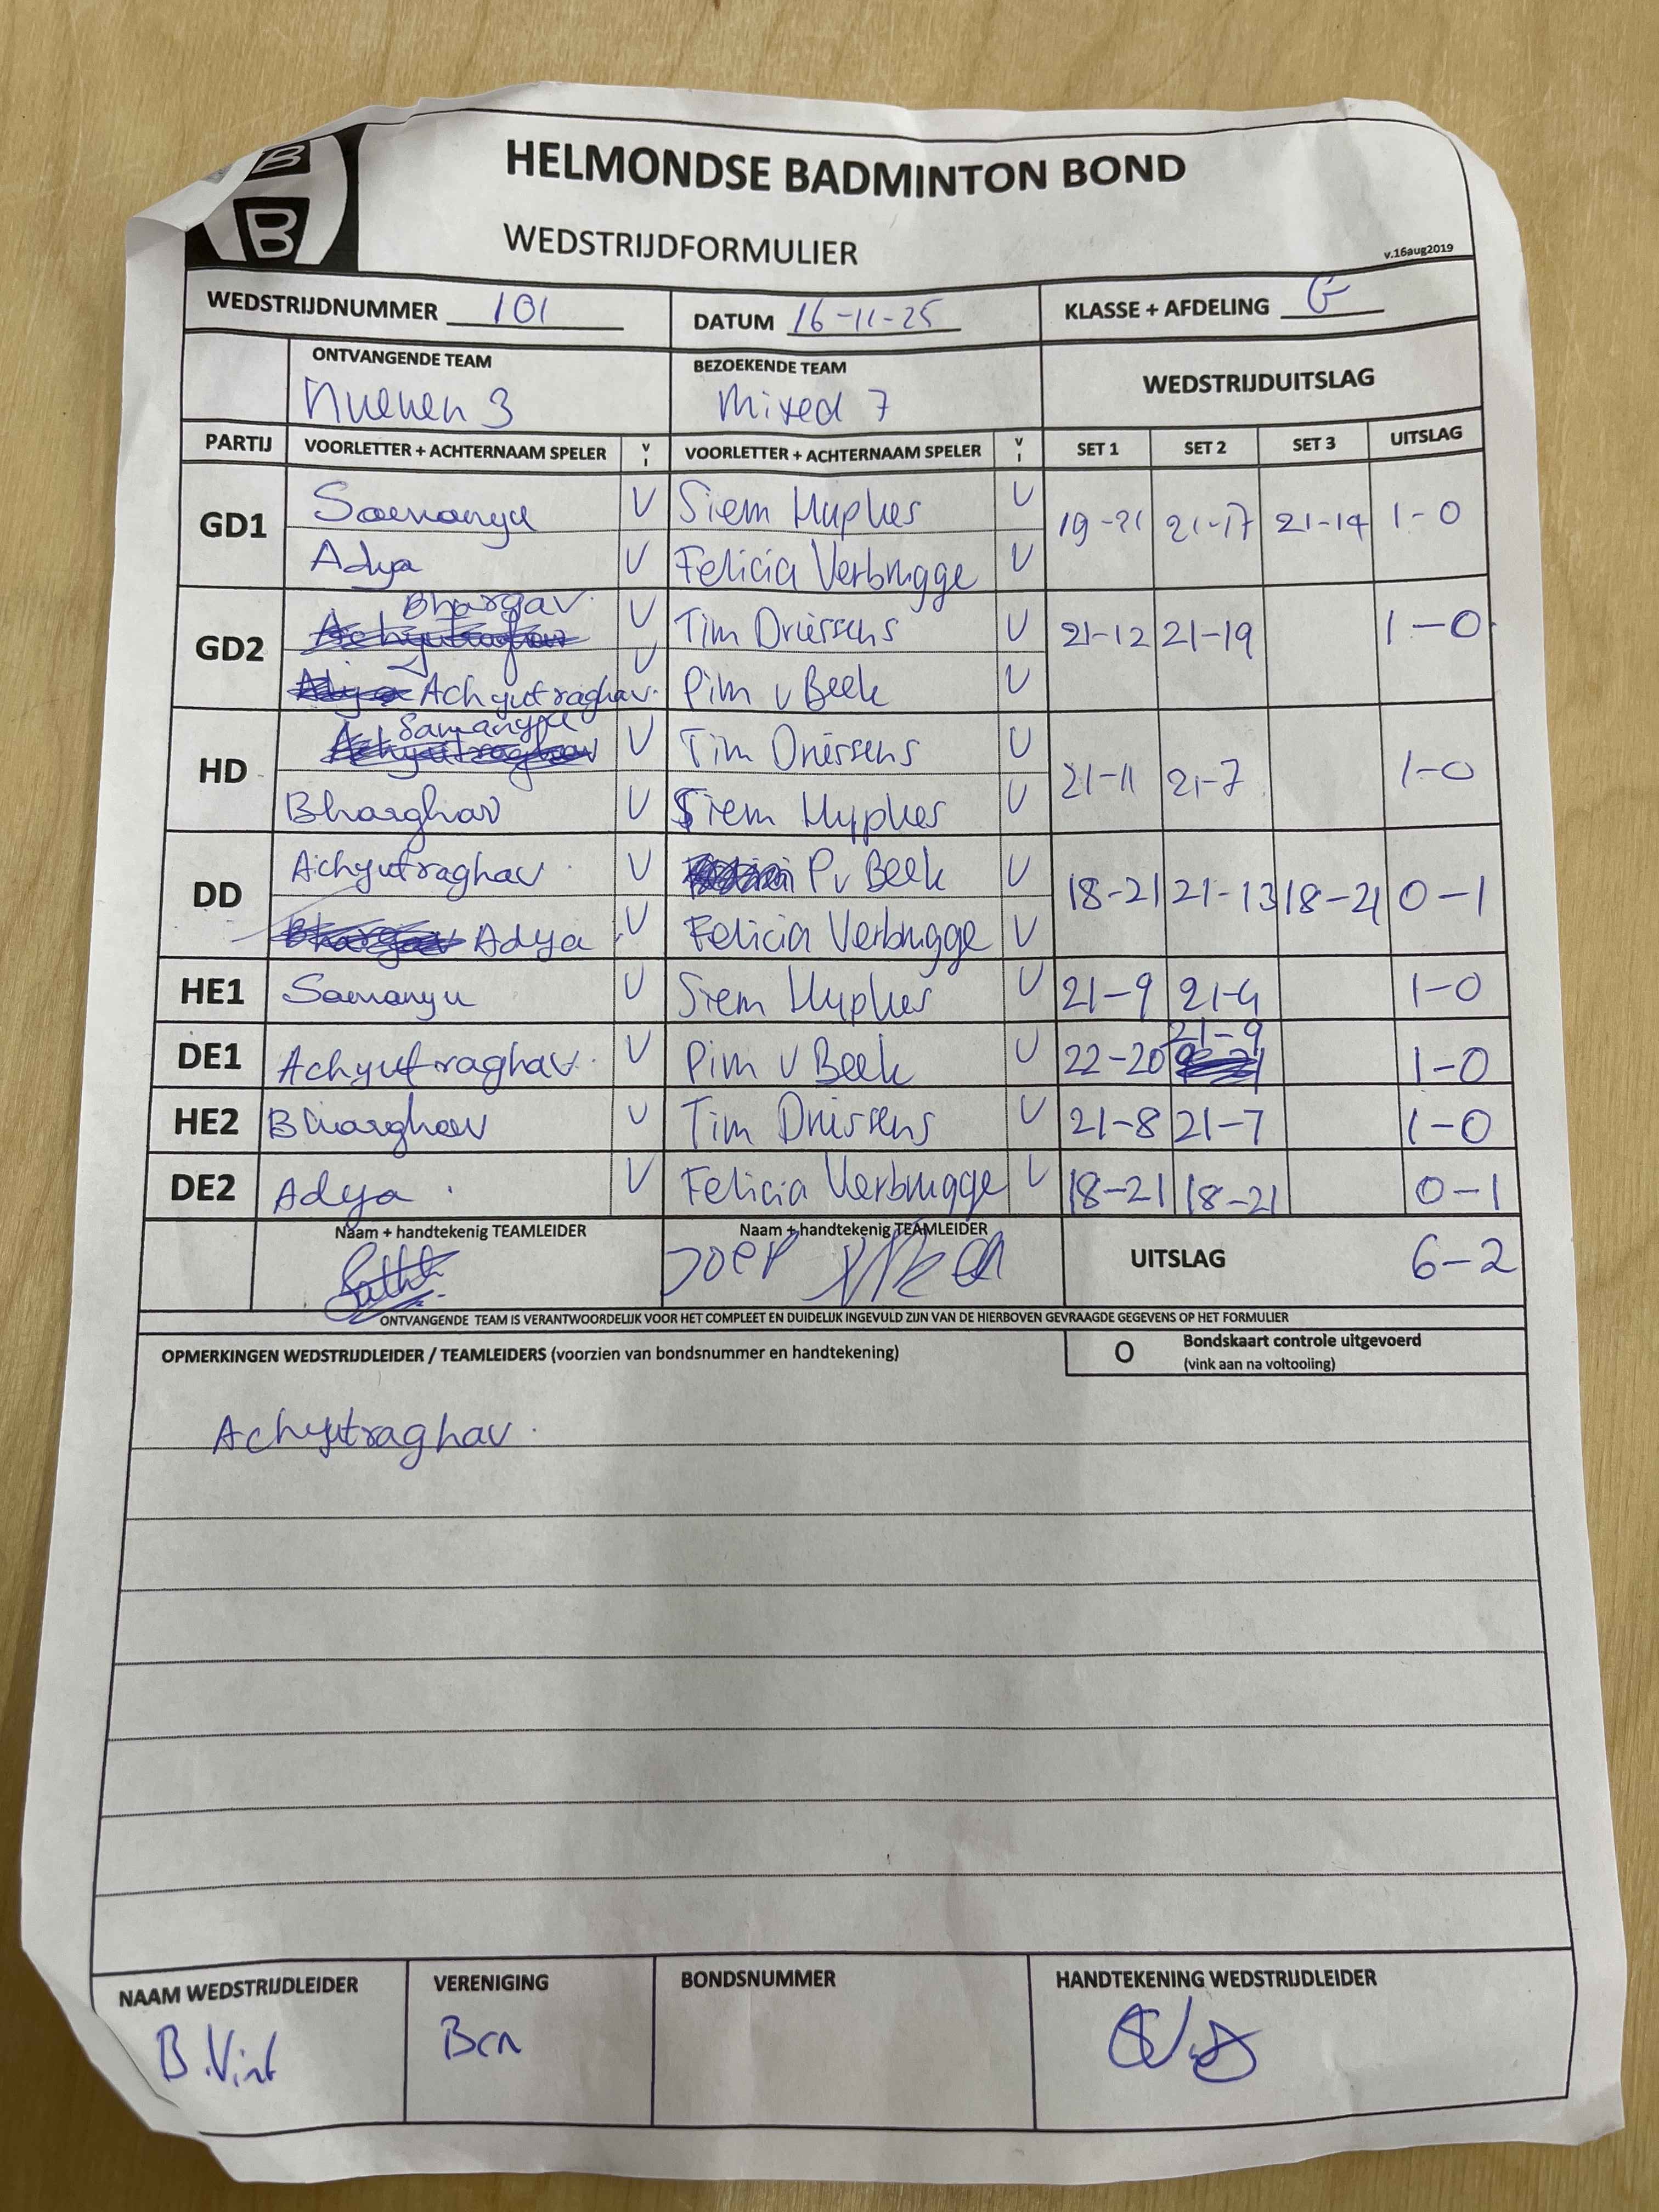 B
B
HELMONDSE BADMINTON BOND
WEDSTRIJDFORMULIER
v.16aug2019
WEDSTRIJDNUMMER 101 DATUM 16-11-25 KLASSE + AFDELING G
ONTVANGENDE TEAM BEZOEKENDE TEAM WEDSTRIJDUITSLAG
Nuenen 3 Mixed 7
PARTIJ VOORLETTER + ACHTERNAAM SPELER V I VOORLETTER + ACHTERNAAM SPELER V I SET 1 SET 2 SET 3 UITSLAG
GD1 Samanyu V Siem Huphes V 19-21 21-17 21-14 1-0
Adya V Felicia Verbrugge V
GD2 Bhargav V Tim Driessens V 21-12 21-19 1-0
Achyutraghav V Pim v Beek V
HD Samanyu V Tim Driessens V 21-11 21-7 1-0
Bharghav V Siem Huphes V
DD Achyutraghav V P v Beek V 18-21 21-13 18-21 0-1
Adya V Felicia Verbrugge V
HE1 Samanyu V Siem Huphes V 21-9 21-4 1-0
DE1 Achyutraghav V Pim v Beek V 22-20 21-9 1-0
HE2 Bharghav V Tim Driessens V 21-8 21-7 1-0
DE2 Adya V Felicia Verbrugge V 18-21 18-21 0-1
Naam + handtekenig TEAMLEIDER Naam + handtekenig TEAMLEIDER UITSLAG 6-2
Joep
ONTVANGENDE TEAM IS VERANTWOORDELIJK VOOR HET COMPLEET EN DUIDELIJK INGEVULD ZIJN VAN DE HIERBOVEN GEVRAAGDE GEGEVENS OP HET FORMULIER
OPMERKINGEN WEDSTRIJDLEIDER / TEAMLEIDERS (voorzien van bondsnummer en handtekening) O Bondskaart controle uitgevoerd
(vink aan na voltooiing)
Achyutraghav
NAAM WEDSTRIJDLEIDER VERENIGING BONDSNUMMER HANDTEKENING WEDSTRIJDLEIDER
B.Vint BCN